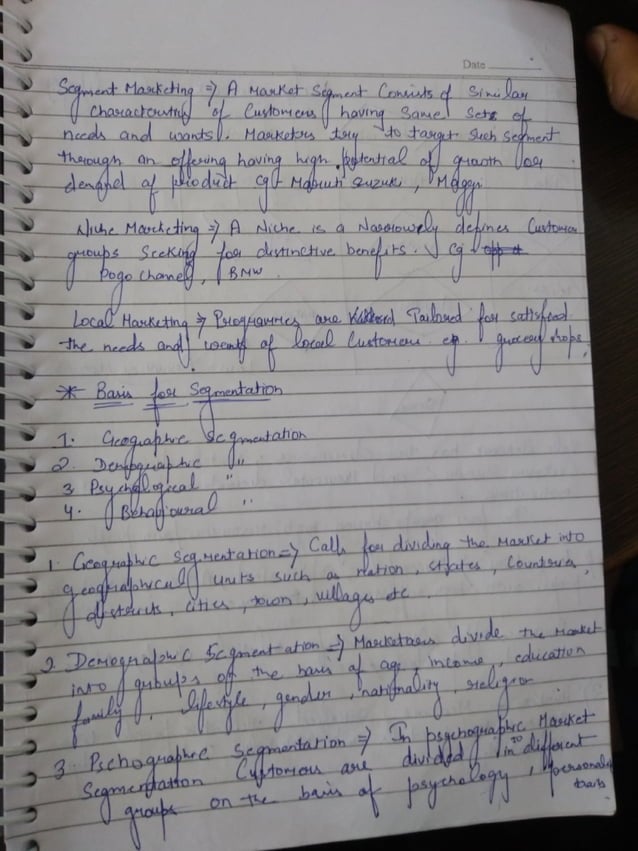 Date
Segment Marketing => A Market Segment Consists of Similar
characteristics of Customers having Same Sets of
needs and wants. Marketers try to target such segment
through an offering having high potential of growth or
demand of product eg- Maruti Suzuki, Maggi
Niche Marketing => A Niche is a Narrowely defines Customer
groups Seeking for distinctive benefits. eg
Pogo Channel, BMW.
Local Marketing => Programmes are Tailored for satisfied
the needs and wants of local Customers eg. grocery shops.
* Basis for Segmentation
1. Geographic Segmentation
2. Demographic "
3. Psychological "
4. Behavioural "
1. Geographic Segmentation => Calls for dividing the Market into
geographical units such as nation, states, Countries,
districts, cities, town, villages etc.
2. Demographic Segmentation => Marketers divide the market
into groups of the basis of age, income, education
family, lifestyle, gender, nationality, religion
3. Pschographic Segmentation => In psychographic Market
Segmentation Customers are divided into different
groups on the basis of psychology, personality
traits